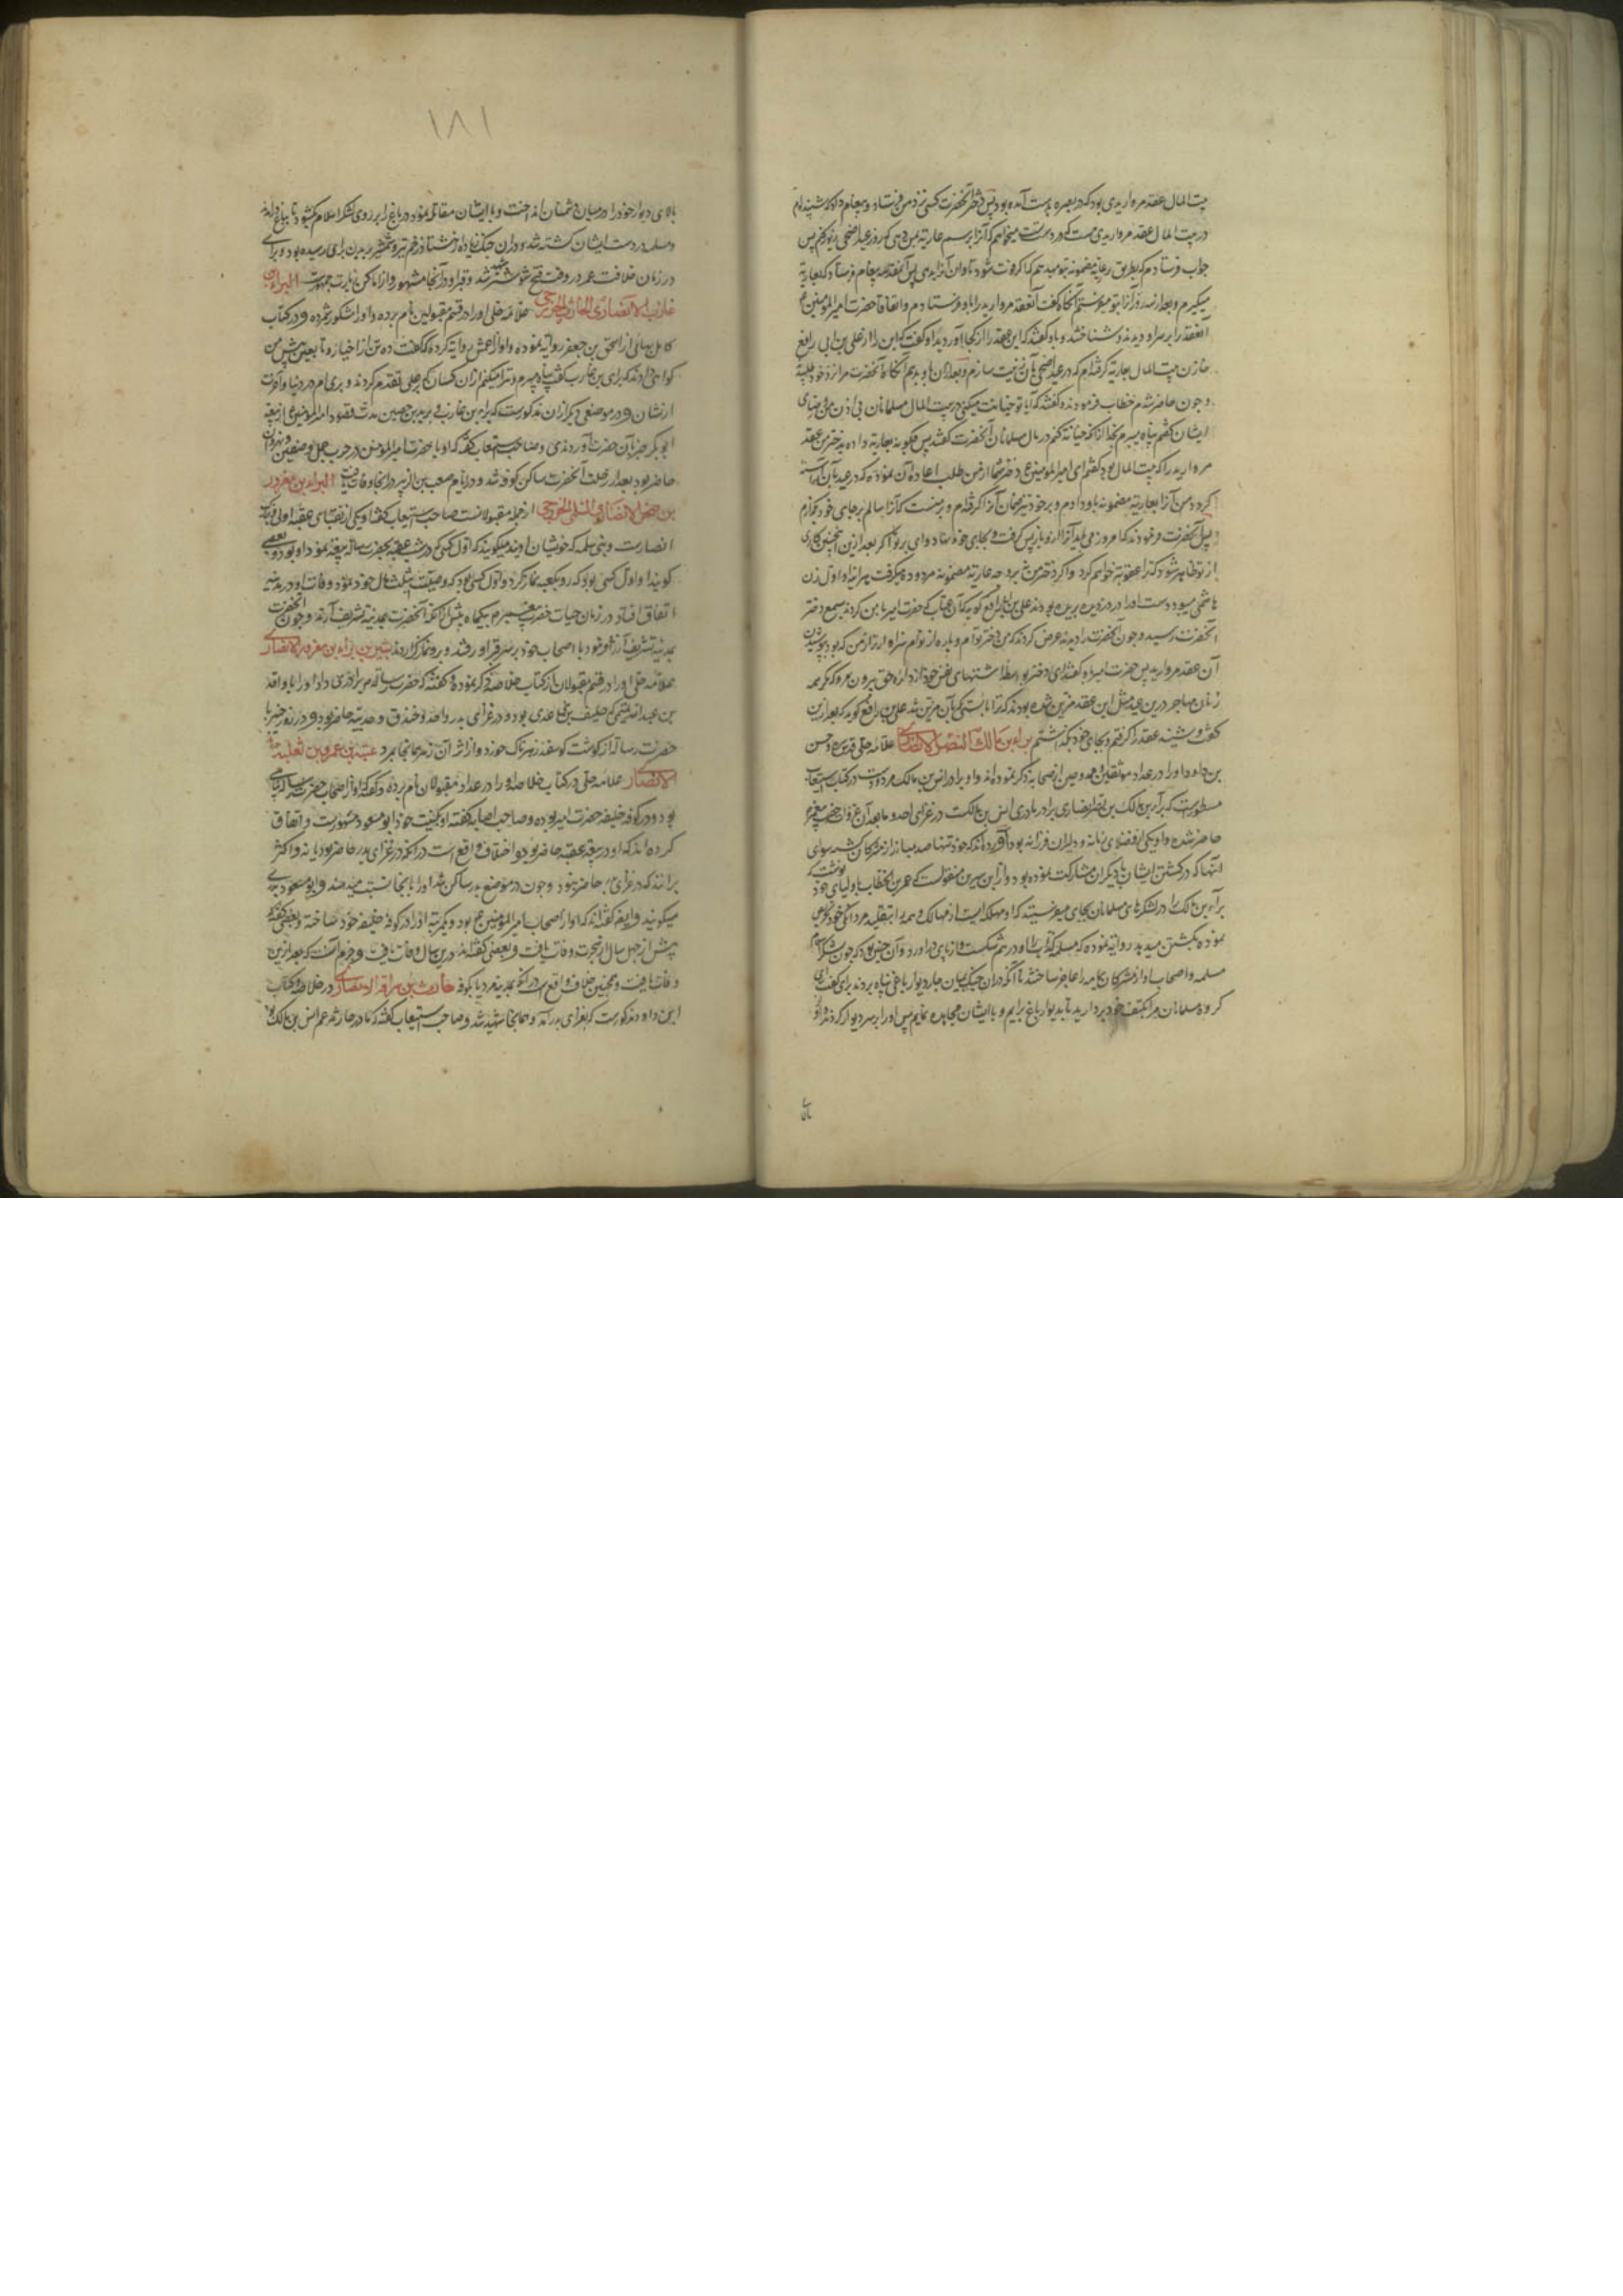 بیت المال عقد مرواریدی بود که در بصره بدست آمده بود پس دختر آنحضرت کسی نزد من فرستاد و پیغام داد که شنیده‌ام
در بیت المال عقد مرواریدی هست که در دست تست میخواهم که آنرا برسم عاریه بمن دهی که روز عید اضحی زیور کنم پس
جواب فرستادم که بطریق عاریه مضمونه بتو میدهم که اگر فوت شود تاوان آنرا بدهی پس آنمخدره پیغام فرستاد که بعاریة
میگیرم و بعد از سه روز آنرا بتو میفرستم آنگاه عقد مروارید را باو فرستادم و اتفاقا حضرت امیر المومنین ع
آنعقد را بر سر او دیدند و شناختند و باو گفتند که این عقد را از کجا آوردی او گفت که این را از علی بن ابی رافع
خازن بیت المال بعاریه گرفته‌ام که در عید اضحی بآن زینت سازم و بعد از آن باو بدهم آنگاه آنحضرت مرا نزد خود طلبید
و چون حاضر شدم خطاب فرمودند و گفتند که آیا تو خیانت میکنی در بیت المال مسلمانان بی اذن من و رضای
ایشان گفتم پناه میبرم بخدا از آنکه خیانة کنم در مال مسلمانان آنحضرت گفتند پس چگونه بعاریه داده بدختر من عقد
مروارید را که در بیت المال بود گفتم ای امیر المومنین ع دختر شما از من طلب اعاده آن نموده که در عید بآن آراسته
گردد و من آنرا بعاریه مضمونه باو دادم و بر خود نیز ضمان آنرا گرفته‌ام و بر منست که آنرا سالم بر جای خود بگذارم
پس آنحضرت فرمودند که امروز می باید آنرا از او باز پس گرفت و بجای خود نهاد و وای بر تو اگر بعد ازین اینچنین کاری
از تو ظاهر شود که ترا عقوبت خواهم کرد و اگر دختر من نه بر وجه عاریه مضمونه مردوده میگرفت هر آینه او اول زن
هاشمی میبود که دست او را در دزدی بریده بودند علی بن ابی رافع گوید که آن عتاب که حضرت امیر با من کردند بسمع دختر
آنحضرت رسید و چون آنحضرت را دید عرض کرد که من دختر توام و پاره از توام سزاوارتر از من که بود بپوشیدن
آن عقد مروارید پس حضرت امیر باو گفتند ای دختر بواسطه اشتهای نفس خود از دایره حق بیرون مرو مگر همه
زنان مهاجر درین عید مثل این عقد مزین شده بودند که ترا بایستی بآن مزین شد علی بن رافع گوید که بعد ازین
گفت و شنید عقد را گرفتم و بجای خود گذاشتم براء بن مالک النضر الانصاری علامه حلی قدس سره و حسن
بن داود او را در عداد موثقین و ممدوحین از صحابه ذکر نموده‌اند و او برادر انس بن مالک مردود است در کتاب استیعاب
مسطور است که براء بن مالک بن نضر انصاری برادر مادری انس بن مالکست در غزای احد و ما بعد آن از غزوات حضرت پیغمبر
حاضر شده و او یکی از فضلای زمانه و دلیران فرزانه بود و آورده‌اند که خود تنها صد مبارز از مشرکان کشته سوای
آنها که در کشتن ایشان با دیگران مشارکت نموده بود و از ابن سیرین منقولست که عمر بن الخطاب باولیای خود نوشت که
براء بن مالک را در لشکرهای مسلمانان بجای میفرستید که او مهلکه ایست از مهالک و همه را بتقلید مردانگی خود
نموده بکشتن میدهد روایه نموده که مسلمه کذاب را او در هم شکست و از پای در آورد و آن چنین بود که چون لشکر اسلام
مسلمه و اصحاب او از مشرکان یمامه را عاجز ساختند تا آنکه در آن جنگ بمیان چهار دیوار باغی پناه بردند براء گفت ای
گروه مسلمانان مرا بکتف خود بردارید تا بدیوار باغ برایم و با ایشان مجاهده نمایم پس او را بر سر دیوار کردند و از
بالای
۱۸۱
بالای دیوار خود را در میان دشمنان انداخت و با ایشان مقاتله نمود و در باغ را بر روی لشکر اسلام گشود تا بباغ درآمدند
و مسلمه در دست ایشان کشته شد و در آن جنگ زیاده از هشتاد زخم تیر و شمشیر بر بدن براء رسیده بود و براء
در زمان خلافت عمر در وقت فتح شوشتر شهید شد و قبر او در آنجا مشهور و از اماکن زیارت جمهورست البراء بن
عازب الانصاری الحارثی الخزرجی علامه حلی او را در قسم مقبولین نام برده و او را مشکور شمرده و در کتاب
کامل بهائی از اسحق بن جعفر روایه نموده و او از اعمش روایه کرده که گفت ده تن از اخیار و تابعین پیش من
گواهی دادند که براء بن عازب گفت پناه میبرم و تبرا میکنم از آن کسان که بر علی تقدم کردند و بری ام در دنیا و آخرت
از ایشان و در موضعی دیگر از آن مذکورست که براء بن عازب و برید بن حصین مدت مفقود امیر المومنین ع از بیعة
ابو بکر خبر بآن حضرت آوردندی و صاحب استیعاب گفته که او با حضرت امیر المومنین در حرب جمل و صفین و نهروان
حاضر بود و بعد از رحلت آنحضرت ساکن کوفه شد و در ایام مصعب بن الزبیر در آنجا وفات یافت البراء بن معرور
بن صخر الانصاری السلمی الخزرجی از جمله مقبولانست صاحب استیعاب گفته او یکی از نقبای عقبه اولی و قبایل
انصارست و بنی سلمه که خویشان اویند میگویند که اول کسی که در شب عقبه بحضرت رسالت بیعة نمود او بود و بعضی
گویند او اول کسی بود که رو بکعبه نماز کرد و اول کسی بود که وصیت بثلث مال خود نمود و وفات او در مدینه
اتفاق افتاد در زمان حیات حضرت پیغمبر بیکماه پیش از آنکه آنحضرت بمدینة تشریف آرند و چون آنحضرت
بمدینة تشریف ارزانی نمود با اصحاب خود بر سر قبر او رفتند و برو نماز گزاردند بشر بن براء بن معرور الانصاری
علامه حلی او را در قسم مقبولان از کتاب خلاصه ذکر نموده و گفته که حضرت رسالة میان او برادری داد او را با واقد
بن عبد الله التمیمی که حلیف بنی عدی بود و در غزای بدر و احد و خندق و حدیبیه حاضر بود و در روز خیبر با
حضرت رسالة از گوشت گوسفند زهرناک خورد و از اثر آن زهر بهمانجا بمرد عقبة بن عمرو بن ثعلبة
الانصاری علامه حلی در کتاب خلاصه او را در عداد مقبولان نام برده و گفته که او از اصحاب حضرت رسالة پناهی
بود و در کوفه خلیفه حضرت امیر بوده و صاحب اصابه گفته او بکنیت خود ابو مسعود مشهورست و اتفاق
کرده‌اند که او در بیعة عقبه حاضر بود و اختلاف واقع است در آنکه در غزای بدر حاضر بود یا نه و اکثر
برانند که در غزای بدر حاضر نبود و چون در موضع بدر ساکن شد او را بآنجا نسبت میدهند و ابو مسعود بدری
میگویند و ایضه گفته‌اند که او از اصحاب امیر المومنین ع بود و یکمرتبه او را در کوفه خلیفه خود ساخته و بعضی گفته‌اند
پیش از چهل سال از هجرت وفات یافت و بعضی گفته‌اند درین سال وفات یافت و جزم آنست که بعد ازین
وفات یافت و همچنین خلاف واقع است در آنکه بمدینه مرد یا بکوفه حارث بن سراقة الانصاری در خلاصه و کتاب
ابن داود مذکورست که بغزای بدر آمد و همانجا شهید شد و صاحب استیعاب گفته که مادر حارثه عم انس بن مالک بود